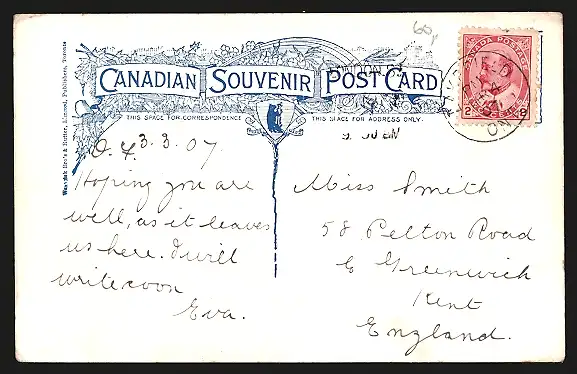 60
CANADIAN SOUVENIR POST CARD
THIS SPACE FOR CORRESPONDENCE
THIS SPACE FOR ADDRESS ONLY.
CANADA POSTAGE
2 2
ONT
Toronto
3.3.07
Hoping you are
well, as it leaves
us here. I will
write soon
Eva.
Miss Smith
58 Pelton Road
E Greenwich
Kent
England.